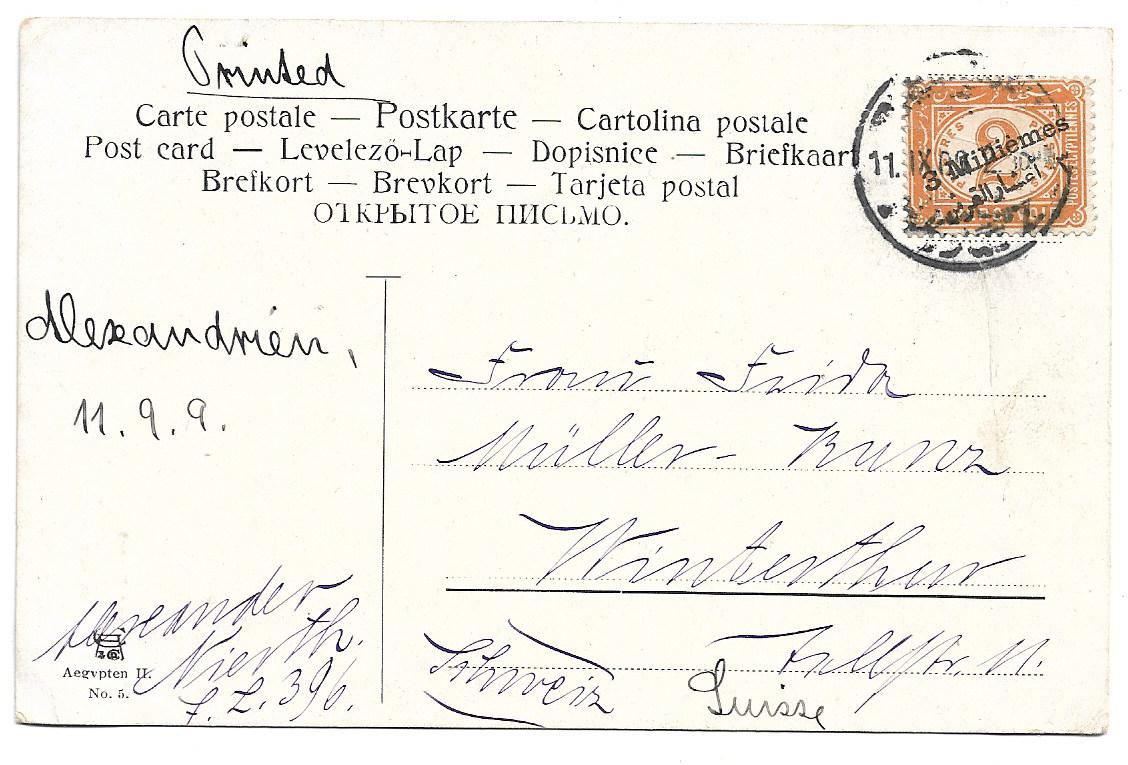 Printed
Carte postale — Postkarte — Cartolina postale
Post card — Levelező-Lap — Dopisnice — Briefkaart
Brefkort — Brevkort — Tarjeta postal
ОТКРЫТОЕ ПИСЬМО.
11. IX
3 Millièmes
Alexandrien,
11. 9. 9.
Frau Frida
Müller-Kunz
Winterthur
Schweiz
Suisse
Alexander
Aegypten II.
No. 5.